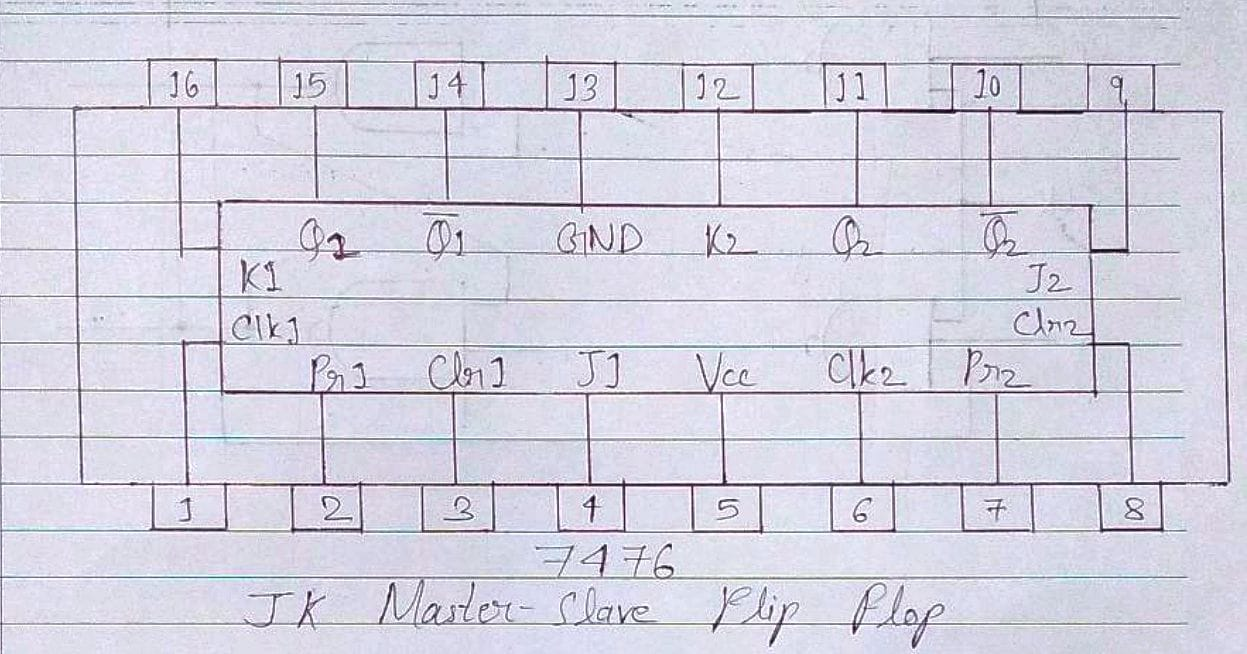 16 15 14 13 12 11 10 9
Q1 Q̅1 GND K2 Q2 Q̅2
K1 J2
Clk1 Clr2
Pr1 Clr1 J1 Vcc Clk2 Pr2
1 2 3 4 5 6 7 8
7476
JK Master-Slave Flip Flop